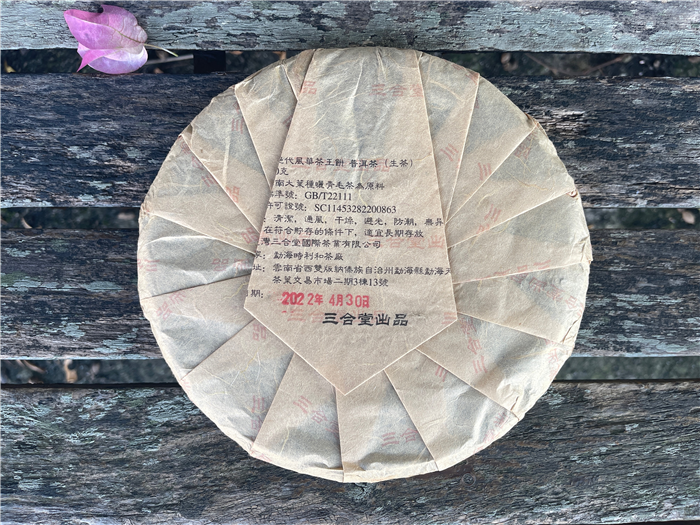 三合堂
代風華茶王餅 普洱茶（生茶）
克
南大葉種曬青毛茶為原料
準號：GB/T22111
可證號：SC11453282200863
清潔，通風，干燥，避光，防潮，無异
在符合貯存的條件下，適宜長期存放
灣三合堂國際茶業有限公司
：勐海時利和茶廠
址：雲南省西雙版納傣族自治州勐海縣勐海
茶葉交易市場二期3棟13號
期：2022年 4月30日
三合堂出品
三合堂
三合堂